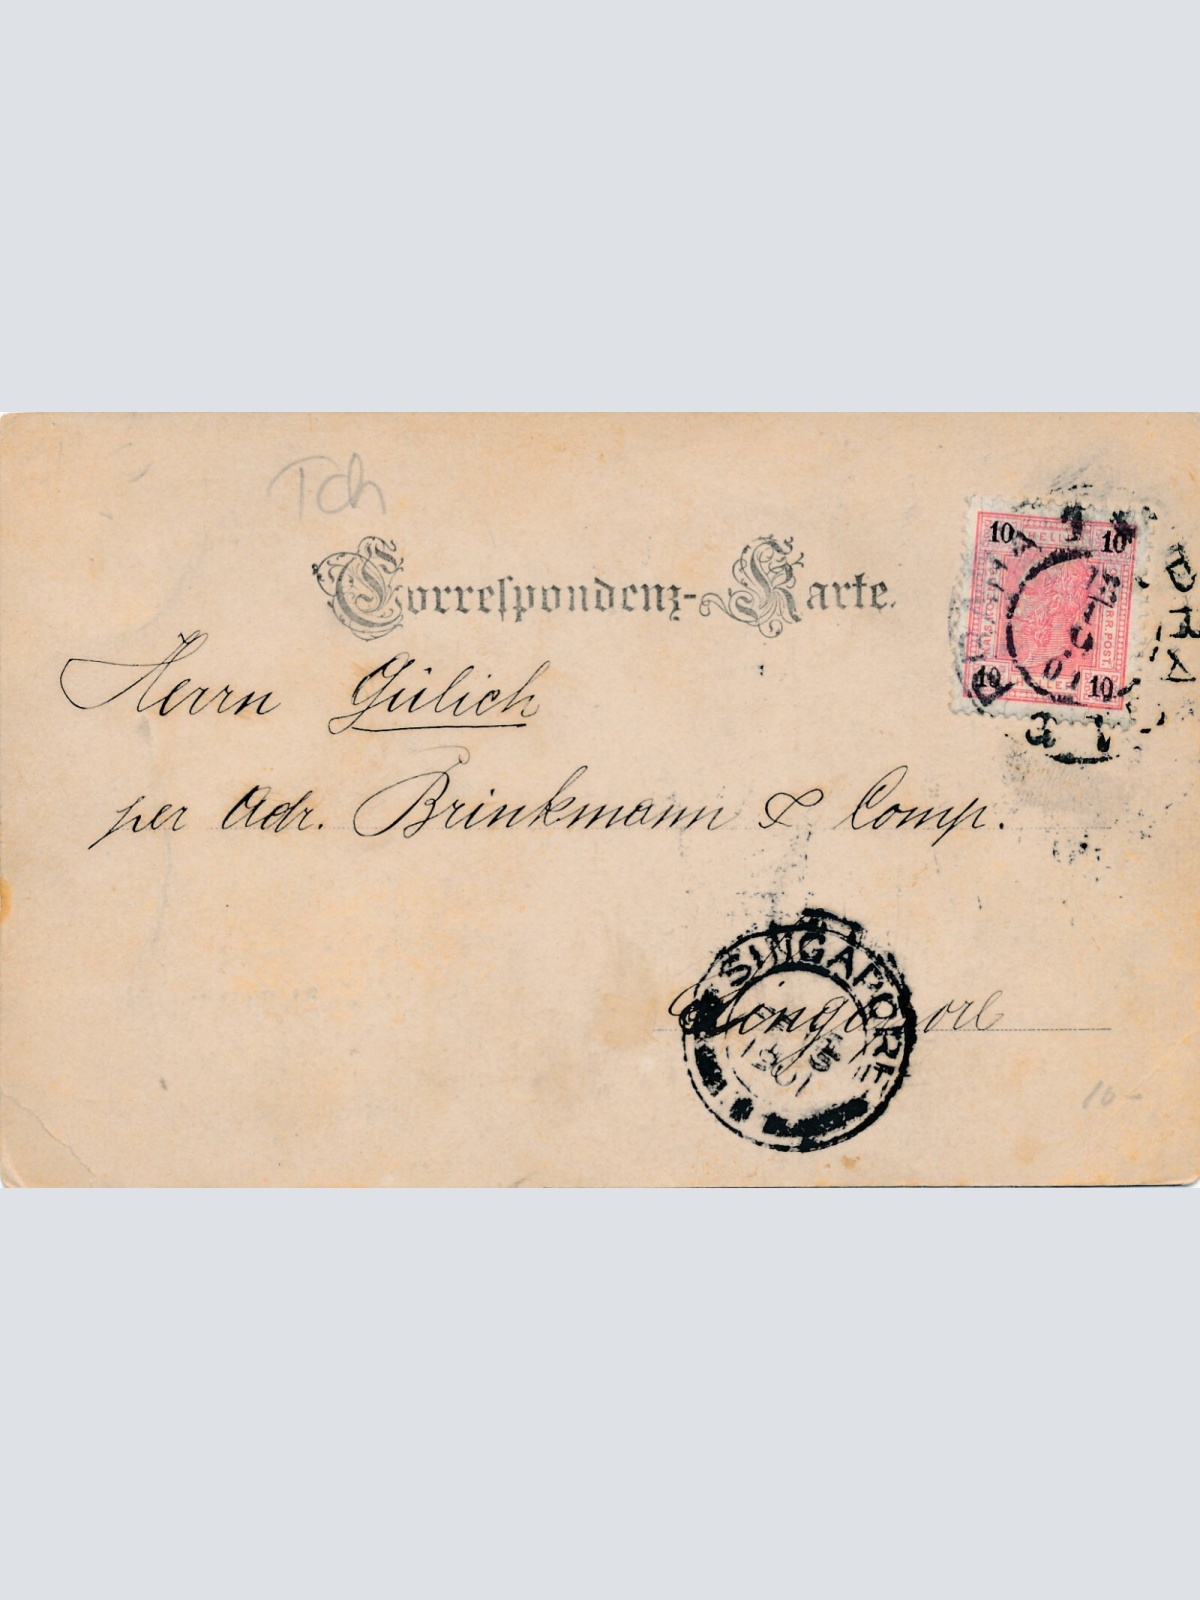 Tch
Correspondenz-Karte.
10 10
10 10
HELLER
Herrn Gülich
per Adr. Brinkmann & Comp.
Singapore
SINGAPORE
1901
10-